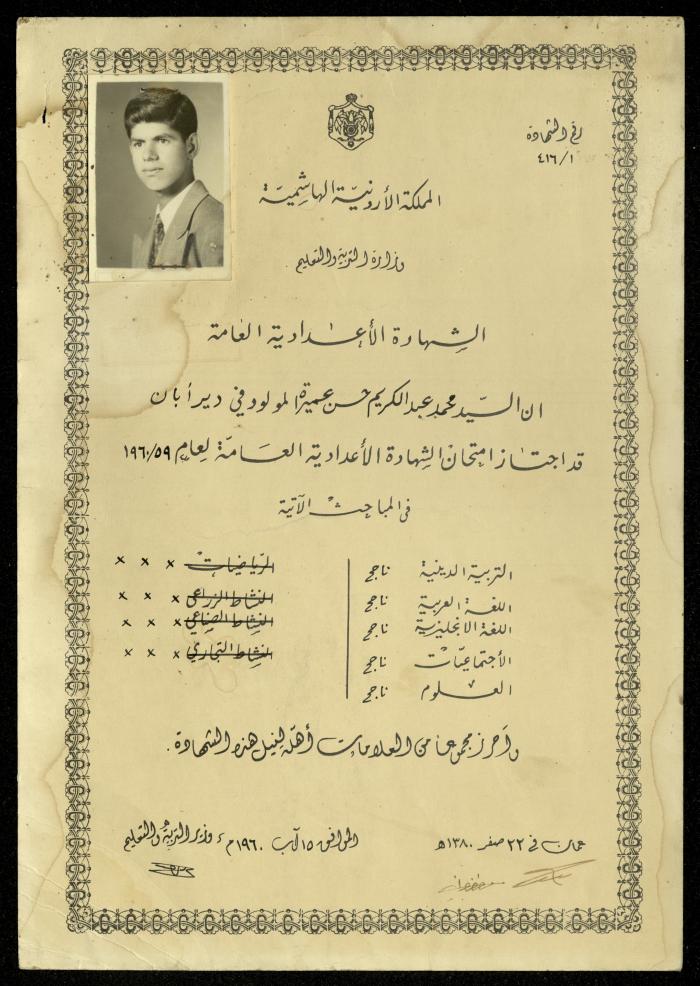 رقم الشهادة
٤١٦/١
المملكة الأردنية الهاشمية
وزارة التربية والتعليم
الشهادة الأعدادية العامة
ان السيد محمد عبد الكريم حسن عميرة المولود في دير أبان
قد اجتاز امتحان الشهادة الأعدادية العامة لعام ١٩٦٠/٥٩
في المباحث الآتية
التربية الدينية ناجح
اللغة العربية ناجح
اللغة الانجليزية ناجح
الأجتماعيات ناجح
العلوم ناجح
الرياضيات x x x
النشاط الزراعي x x x
النشاط الصناعي x x x
النشاط التجاري x x x
وأحرز مجموعا من العلامات أهله لنيل هذه الشهادة.
عمان في ٢٢ صفر ١٣٨٠هـ الموافق ١٥ آب ١٩٦٠م وزير التربية والتعليم